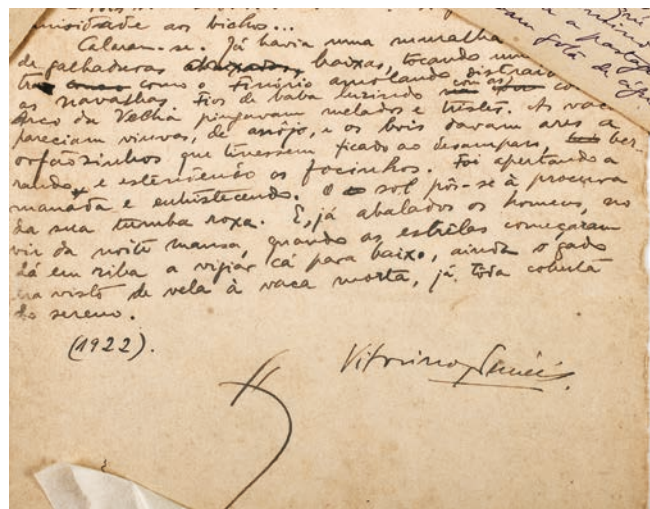 aos bichos...
Calaram-se. Já havia uma muralha
de galhaduras abaixadas, baixas, tocando
como o Finório amolando
as navalhas. Fios de baba luzindo com as
Arco da Velha pingavam melados e tristes. As vac
pareciam viuvas, de anojo, e os bois davam ares a
orfãosinhos que tivessem ficado ao desamparo, ber-
rando, e estendendo os focinhos. Foi apertando a
manada e entristecendo. O sol pôs-se à procura
da sua tumba roxa. E, já abalados os homens, no
vir da noite mansa, quando as estrêlas começaram
lá em riba a vigiar cá para baixo, ainda o gado
era visto de vela à vaca morta, já toda coberta
do sereno.
(1922).
Vitorino Nemésio
a pastage
gota de